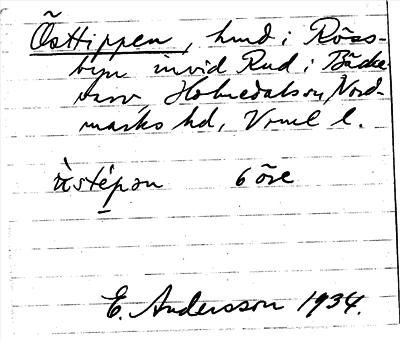 Östtippen, hmd i Röss-
byn invid Rud i Bäcke
varv, Holmedalsson, Nord-
marks hd, Vrml l.
ùstépən 6 öre
E. Andersson 1934.